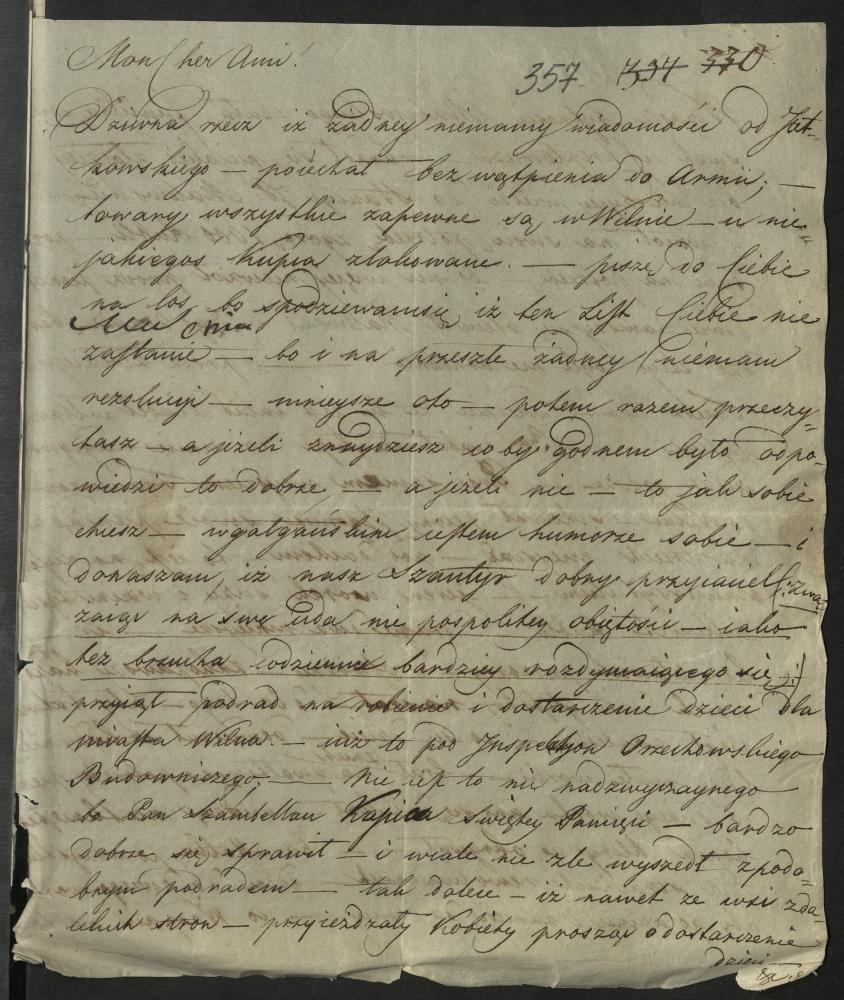 Mon Cher Ami!
357. 434 330
Dziwna rzecz iż żadney niemamy wiadomości od Jat-
kowskiego — poiechał bez wątpienia do Armii; —
towary wszystkie zapewne są w Wilnie — u nie-
jakiegoś Kupca zlokowane. — piszę do Ciebie
na los, bo spodziewamsię, iż ten List Ciebie nie
zastanie — bo i na przeszłe żadney niemam
rezolucyi — mnieysze oto — potem razem przeczy-
tasz — a jeżeli znaydziesz coby godnem było odpo-
wiedzi to dobrze, — a jeżeli nie — to jak sobie
chcesz — w gałgańskim iestem humorze sobie — i
donaszam, iż nasz Szantyr dobry przyiaciel (: zwa-
żaiąc na swe uda nie pospolitey obiętości — iako
też brzucha codziennie bardziey rozdymaiącego się :)
przyiął podrad na robienie i dostarczenie dzieci dla
miasta Wilna. — iuż to pod Inspekcyą Orzechowskiego
Budowniczego; — Nie iest to nic nadzwyczaynego
bo Pan Szambellan Kapica Swiętey Pamięci — bardzo
dobrze się sprawił — i wcale nie źle wyszedł z podo-
bnym podradem — tak dalece — iż nawet ze wsi z da-
lekich stron — przyieżdzały Kobiety prosząc o dostarczenie
dzieci